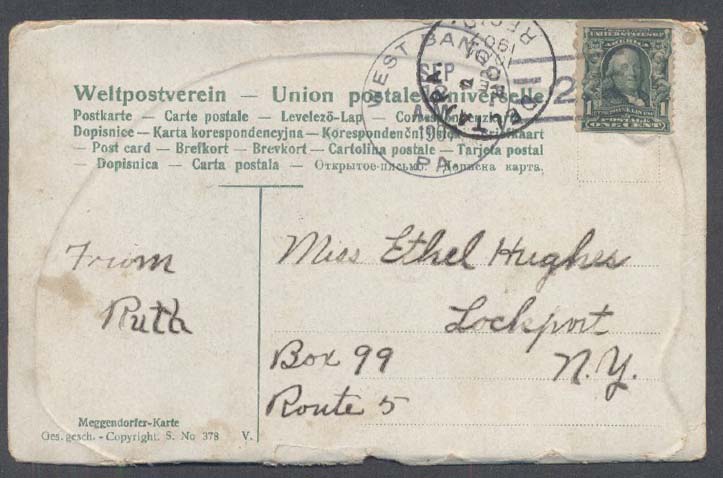 Weltpostverein — Union postale universelle
Postkarte — Carte postale — Levelező-Lap — Correspondenzkarte
Dopisnice — Karta korespondencyjna — Korespondenční lístek — Briefkaart
— Post card — Brefkort — Brevkort — Cartolina postale — Tarjeta postal
— Dopisnica — Carta postala — Открытое письмо. Дописна карта.
WEST BANGOR
SEP
PA.
REC'D.
1907
2
UNITED STATES OF
AMERICA
1
POSTAGE
ONE CENT
From
Ruth
Miss Ethel Hughes
Lockport
Box 99 N.Y.
Route 5
Meggendorfer-Karte
Ges. gesch. - Copyright. S. No 378 V.